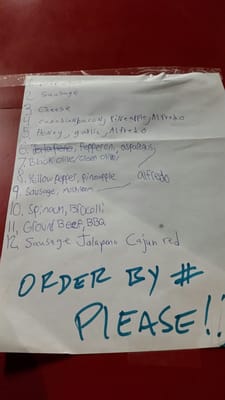 2. Sausage
3. Cheese
4. Canadian bacon, Pineapple, Alfredo
5. Honey, garlic, Alfredo
6. Pepperoni, asparagus
7. Black olive/
8. Yellow pepper, pineapple
alfredo
9. Sausage, mushroom
10. Spinach, Brocolli
11. Ground Beef, BBQ
12. Sausage Jalapeno Cajun red
ORDER BY #
PLEASE!!